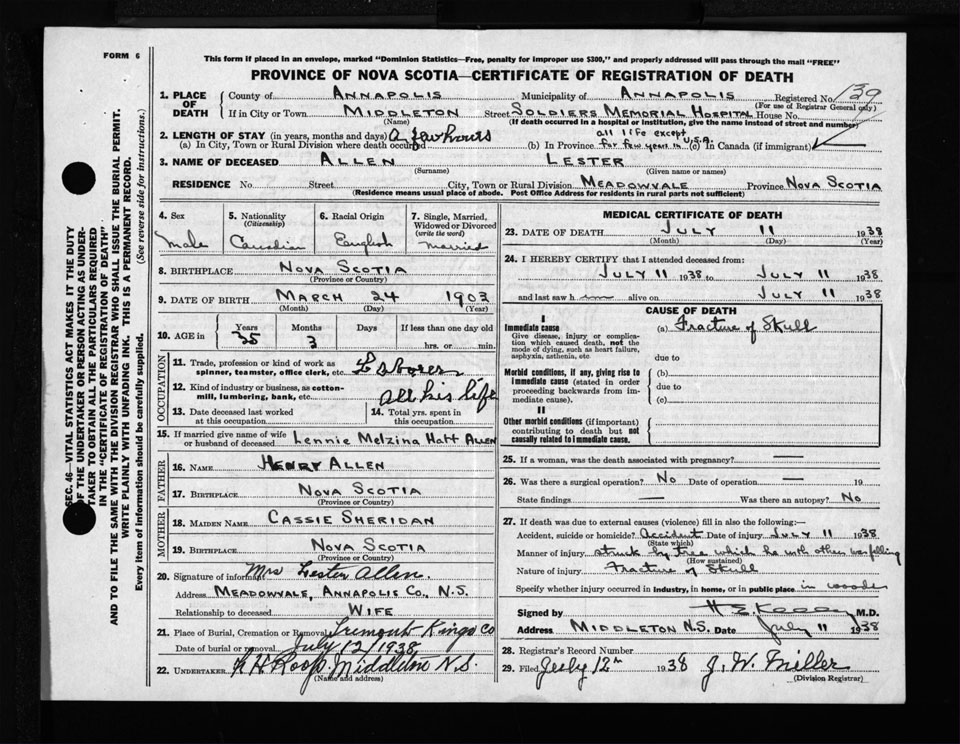 FORM 6
This form if placed in an envelope, marked "Dominion Statistics—Free, penalty for improper use $300," and properly addressed will pass through the mail "FREE"
PROVINCE OF NOVA SCOTIA—CERTIFICATE OF REGISTRATION OF DEATH
SEC. 46—VITAL STATISTICS ACT MAKES IT THE DUTY
OF THE UNDERTAKER OR PERSON ACTING AS UNDER-
TAKER TO OBTAIN ALL THE PARTICULARS REQUIRED
IN THE "CERTIFICATE OF REGISTRATION OF DEATH"
AND TO FILE THE SAME WITH THE DIVISION REGISTRAR WHO SHALL ISSUE THE BURIAL PERMIT.
WRITE PLAINLY WITH UNFADING INK. THIS IS A PERMANENT RECORD.
Every item of information should be carefully supplied. (See reverse side for instructions.)
1. PLACE OF DEATH County of ANNAPOLIS Municipality of ANNAPOLIS Registered No. 139
(For use of Registrar General only)
If in City or Town MIDDLETON Street SOLDIERS MEMORIAL HOSPITAL House No.
(Name) (If death occurred in a hospital or institution, give the name instead of street and number)
2. LENGTH OF STAY (in years, months and days) a few hours all life except
(a) In City, Town or Rural Division where death occurred (b) In Province for few years in U.S.A. (c) In Canada (if immigrant)
3. NAME OF DECEASED ALLEN LESTER
(Surname) (Given name or names)
RESIDENCE No. ? Street City, Town or Rural Division MEADOWVALE Province NOVA SCOTIA
(Residence means usual place of abode. Post Office Address for residents in rural parts not sufficient)
4. Sex 5. Nationality (Citizenship) 6. Racial Origin 7. Single, Married, Widowed or Divorced (write the word)
Male Canadian English Married
8. BIRTHPLACE NOVA SCOTIA
(Province or Country)
9. DATE OF BIRTH MARCH 24 1903
(Month) (Day) (Year)
10. AGE in Years Months Days If less than one day old
35 3 hrs. or min.
OCCUPATION
11. Trade, profession or kind of work as spinner, teamster, office clerk, etc. Laborer
12. Kind of industry or business, as cotton-mill, lumbering, bank, etc. all his life
13. Date deceased last worked at this occupation 14. Total yrs. spent in this occupation
15. If married give name of wife or husband of deceased Lennie Melzina Hatt Allen
FATHER
16. NAME HENRY ALLEN
17. BIRTHPLACE NOVA SCOTIA
(Province or Country)
MOTHER
18. MAIDEN NAME CASSIE SHERIDAN
19. BIRTHPLACE NOVA SCOTIA
(Province or Country)
20. Signature of informant Mrs Lester Allen.
Address MEADOWVALE, ANNAPOLIS CO., N.S.
Relationship to deceased WIFE
21. Place of Burial, Cremation or Removal Tremont Kings Co
Date of burial or removal July 12/1938
22. UNDERTAKER Roop Middleton N.S.
(Name and address)
MEDICAL CERTIFICATE OF DEATH
23. DATE OF DEATH JULY 11 1938
(Month) (Day) (Year)
24. I HEREBY CERTIFY that I attended deceased from:
JULY 11 1938 to JULY 11 1938
and last saw him alive on JULY 11 1938
CAUSE OF DEATH
I
Immediate cause (a) Fracture of Skull
Give disease, injury or complication which caused death, not the mode of dying, such as heart failure, asphyxia, asthenia, etc. due to
Morbid conditions, if any, giving rise to immediate cause (stated in order proceeding backwards from immediate cause). (b)
due to
(c)
II
Other morbid conditions (if important) contributing to death but not causally related to immediate cause.
25. If a woman, was the death associated with pregnancy? —
26. Was there a surgical operation? No Date of operation — 19
State findings — Was there an autopsy? No
27. If death was due to external causes (violence) fill in also the following:—
Accident, suicide or homicide? Accident Date of injury JULY 11 1938
(State which)
Manner of injury struck by tree which he with other was felling
(How sustained)
Nature of injury Fracture of Skull
Specify whether injury occurred in industry, in home, or in public place in woods
Signed by M.D.
Address MIDDLETON N.S. Date July 11 1938
28. Registrar's Record Number
29. Filed July 12th 1938 J. W. Miller
(Division Registrar)